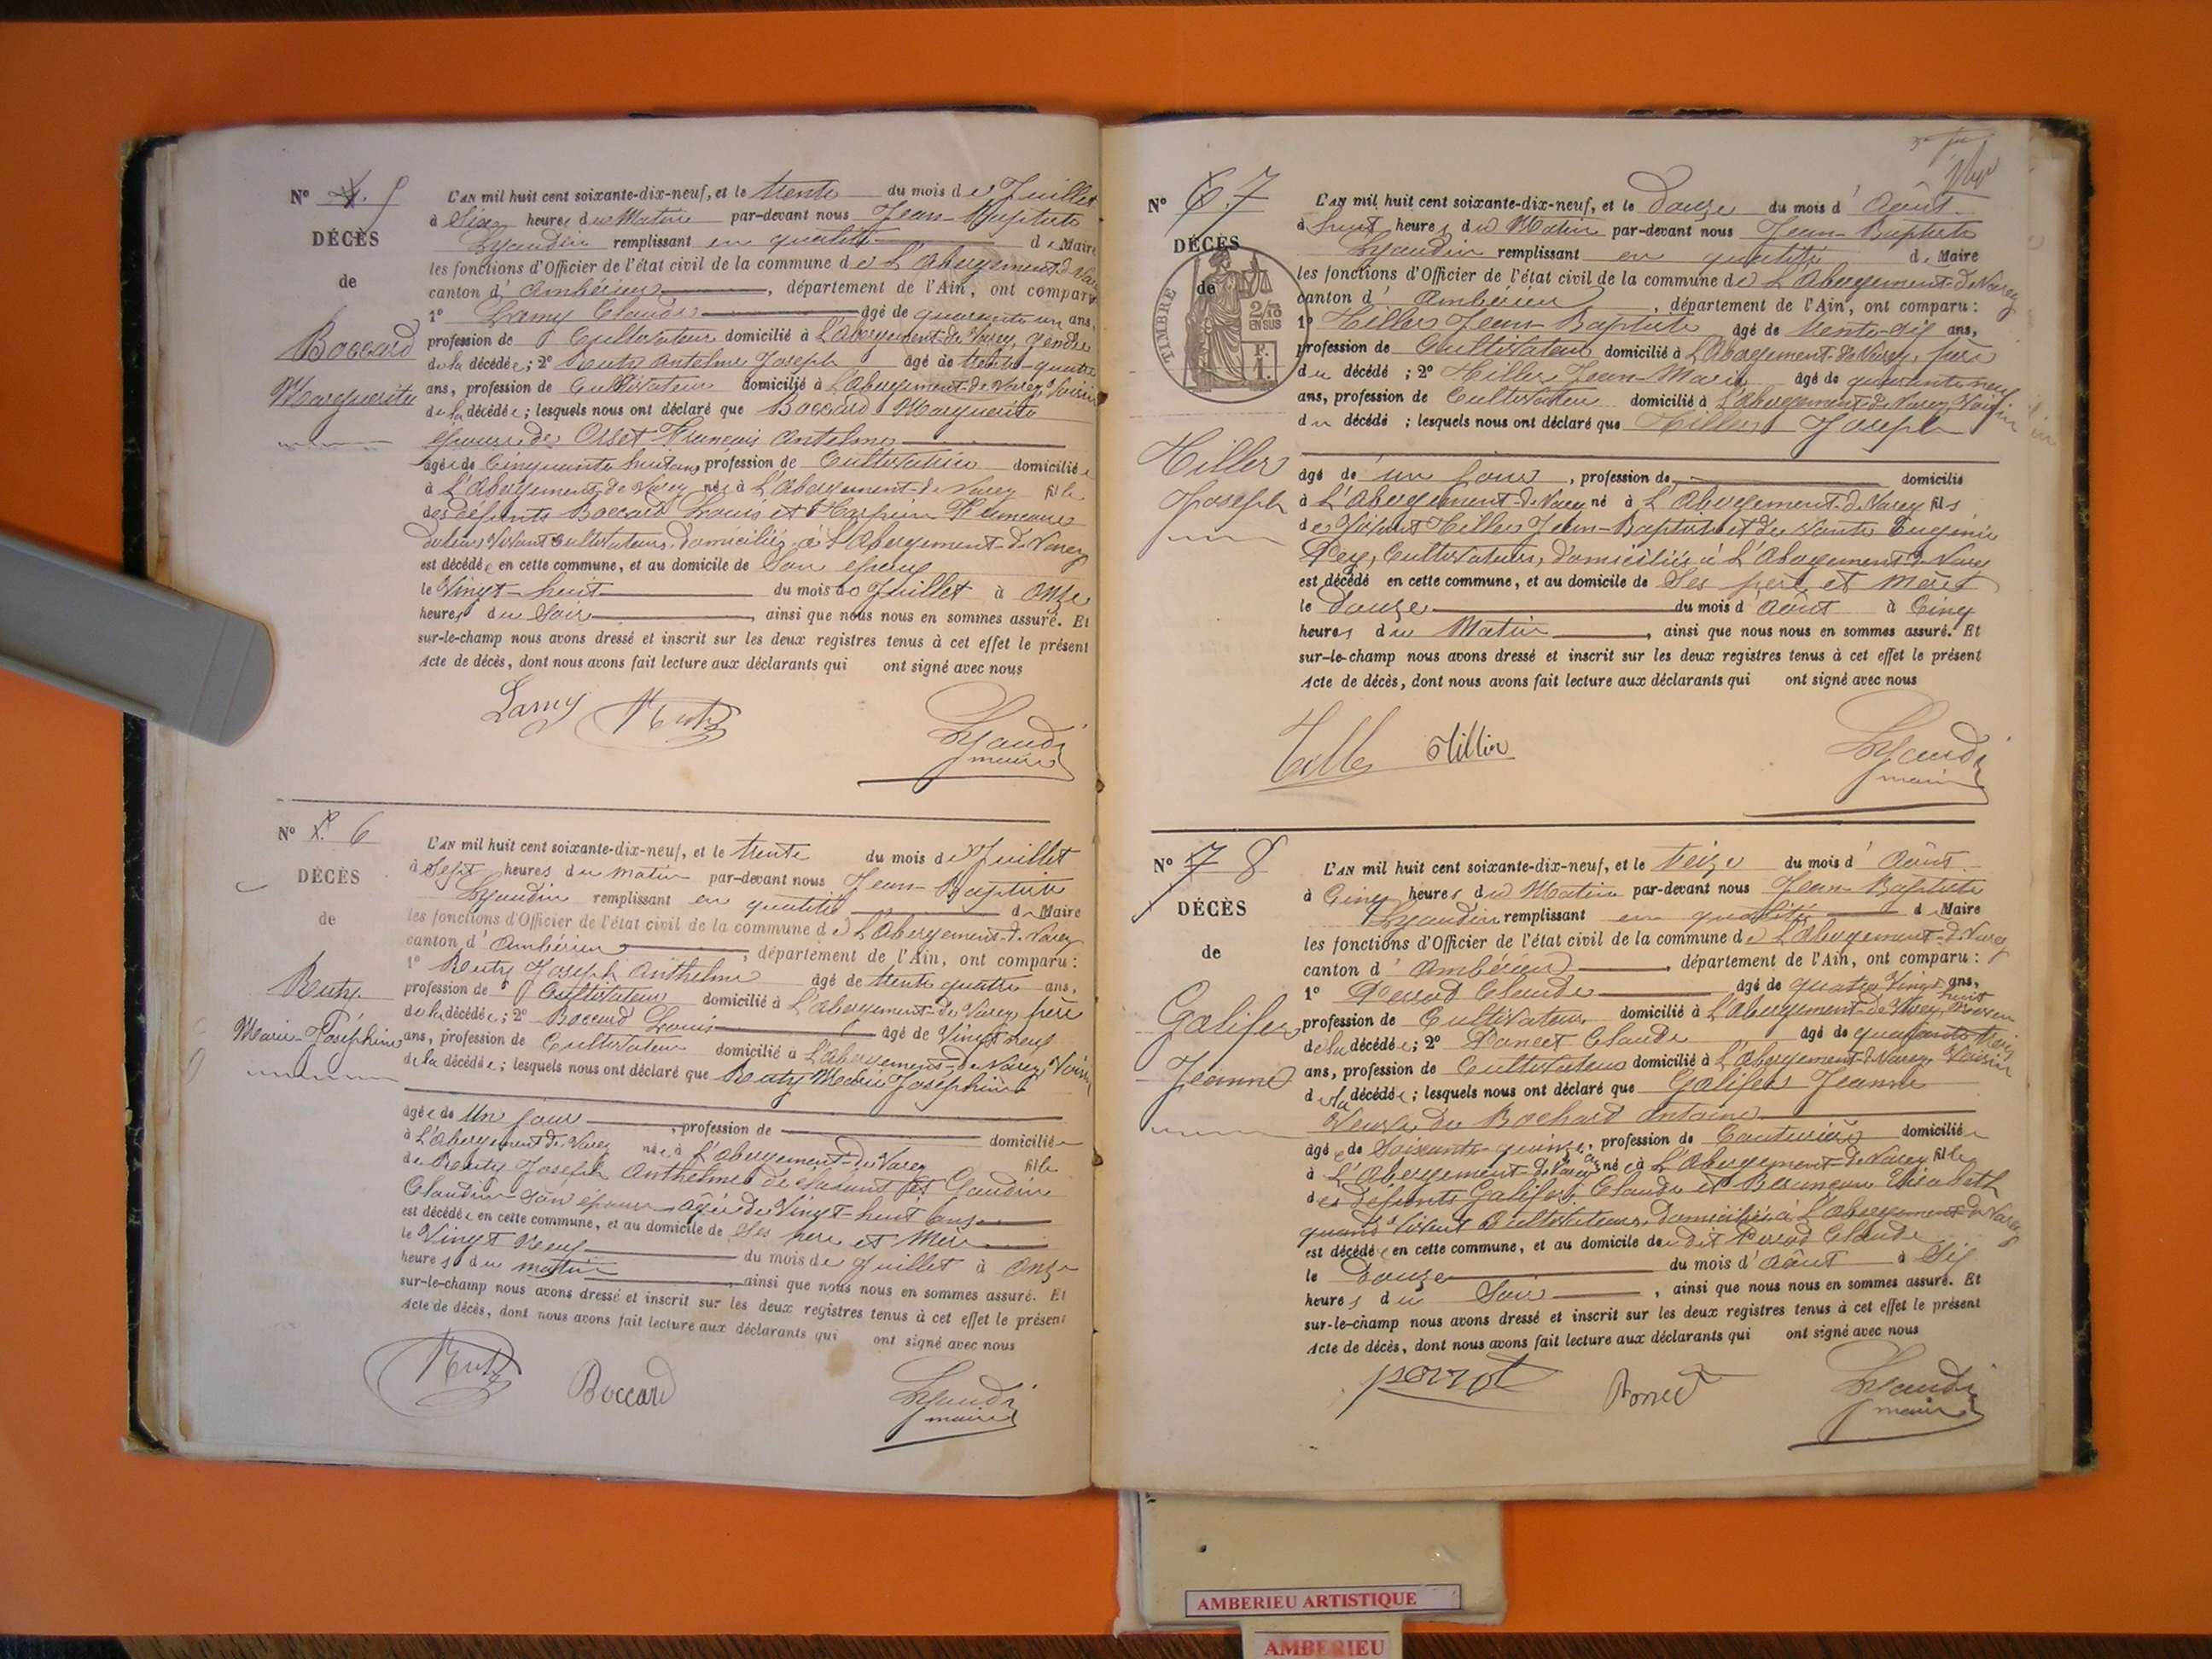 N° 4. 5
DÉCÈS
de
Boccard
Marguerite
L'AN mil huit cent soixante-dix-neuf, et le trente du mois de Juillet
à Six heures du Matin par-devant nous Jean-Baptiste
Lyaudin remplissant en qualité de Maire
les fonctions d'Officier de l'état civil de la commune de L'Abergement-de Varey
canton d'Ambérieu, département de l'Ain, ont comparu
1° Lamy Claude âgé de quarante un ans,
profession de Cultivateur domicilié à L'Abergement-de Varey, Gendre
de la décédée; 2° Reuty Antelme Joseph âgé de trente-quatre
ans, profession de Cultivateur domicilié à L'Abergement-de-Varey, Voisin
de la décédée; lesquels nous ont déclaré que Boccard Marguerite
épouse de Orset François Antelme
âgée de Cinquante huit ans profession de Cultivatrice domiciliée
à L'Abergement-de Varey née à L'Abergement-de Varey fille
des défunts Boccard Louis et
Vivant Cultivateurs, domiciliés à L'Abergement-de-Varey
est décédée en cette commune, et au domicile de Son époux
le Vingt-huit du mois de Juillet à Onze
heures du Soir, ainsi que nous nous en sommes assuré. Et
sur-le-champ nous avons dressé et inscrit sur les deux registres tenus à cet effet le présent
Acte de décès, dont nous avons fait lecture aux déclarants qui ont signé avec nous
Lamy Reuty Lyaudin
maire
N° 5. 6
DÉCÈS
de
Reuty
Marie-Joséphine
L'AN mil huit cent soixante-dix-neuf, et le trente du mois de Juillet
à Sept heures du matin par-devant nous Jean-Baptiste
Lyaudin remplissant en qualité de Maire
les fonctions d'Officier de l'état civil de la commune de L'Abergement-de Varey
canton d'Ambérieu, département de l'Ain, ont comparu:
1° Reuty Joseph Anthelme âgé de trente quatre ans,
profession de Cultivateur domicilié à L'Abergement-de Varey, père
de la décédée; 2° Boccard Louis âgé de Vingt neuf
ans, profession de Cultivateur domicilié à L'Abergement-de Varey, Voisin
de la décédée; lesquels nous ont déclaré que Reuty Marie Joséphine
âgée de Un jour, profession de domiciliée
à L'Abergement-de Varey née à L'Abergement-de Varey fille
de Reuty Joseph Anthelme et Gaudin
Claudine son épouse âgée de Vingt-huit ans
est décédée en cette commune, et au domicile de Ses père et Mère
le Vingt Neuf du mois de Juillet à Onze
heures du matin, ainsi que nous nous en sommes assuré. Et
sur-le-champ nous avons dressé et inscrit sur les deux registres tenus à cet effet le présent
Acte de décès, dont nous avons fait lecture aux déclarants qui ont signé avec nous
Reuty Boccard Lyaudin
maire
N° 6. 7
DÉCÈS
de
TIMBRE
2/10
EN SUS
Hiller
Joseph
L'AN mil huit cent soixante-dix-neuf, et le Douze du mois d'Août
à huit heures du Matin par-devant nous Jean-Baptiste
Lyaudin remplissant en qualité de Maire
les fonctions d'Officier de l'état civil de la commune de L'Abergement-de Varey
canton d'Ambérieu, département de l'Ain, ont comparu:
1° Hiller Jean-Baptiste âgé de trente-six ans,
profession de Cultivateur domicilié à L'Abergement-de Varey, père
du décédé; 2° Hiller Jean-Marie âgé de quarante neuf
ans, profession de Cultivateur domicilié à L'Abergement-de Varey, Voisin
du décédé; lesquels nous ont déclaré que Hiller Joseph
âgé de un jour, profession de domicilié
à L'Abergement-de Varey né à L'Abergement-de Varey fils
de Vivant Hiller Jean-Baptiste et de Vivante Eugénie
Rey, Cultivateurs, domiciliés à L'Abergement de Varey
est décédé en cette commune, et au domicile de Ses père et Mère
le Douze du mois d'Août à Cinq
heures du Matin, ainsi que nous nous en sommes assuré. Et
sur-le-champ nous avons dressé et inscrit sur les deux registres tenus à cet effet le présent
Acte de décès, dont nous avons fait lecture aux déclarants qui ont signé avec nous
Lyaudin
maire
N° 7 8
DÉCÈS
de
Galifer
Jeanne
L'AN mil huit cent soixante-dix-neuf, et le treize du mois d'Août
à Cinq heures du Matin par-devant nous Jean-Baptiste
Lyaudin remplissant en qualité de Maire
les fonctions d'Officier de l'état civil de la commune de L'Abergement-de Varey
canton d'Ambérieu, département de l'Ain, ont comparu:
1° Perrod Claude âgé de quatre Vingt ans,
profession de Cultivateur domicilié à L'Abergement-de Varey,
de la décédée; 2° Poncet Claude âgé de quarante huit
ans, profession de Cultivateur domicilié à L'Abergement-de Varey, Voisin
de la décédée; lesquels nous ont déclaré que Galifer Jeanne
Veuve de Bochard Antoine
âgée de Soixante-quinze, profession de Couturière domiciliée
à L'Abergement-de Varey née à L'Abergement-de Varey fille
des défunts Galifer Claude et Elisabeth
quand Vivant Cultivateurs, domiciliés à L'Abergement-de Varey
est décédée en cette commune, et au domicile du dit Perrod Claude
le Douze du mois d'Août à Six
heures du Soir, ainsi que nous nous en sommes assuré. Et
sur-le-champ nous avons dressé et inscrit sur les deux registres tenus à cet effet le présent
Acte de décès, dont nous avons fait lecture aux déclarants qui ont signé avec nous
perrod Poncet Lyaudin
maire
AMBERIEU ARTISTIQUE
AMBERIEU